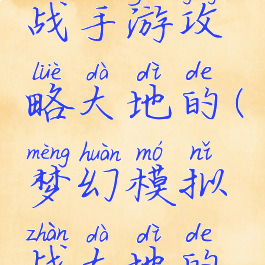 战手游攻
lüè dà dì de
略大地的(
mèng huàn mó nǐ
梦幻模拟
zhàn dà dì de
战大地的